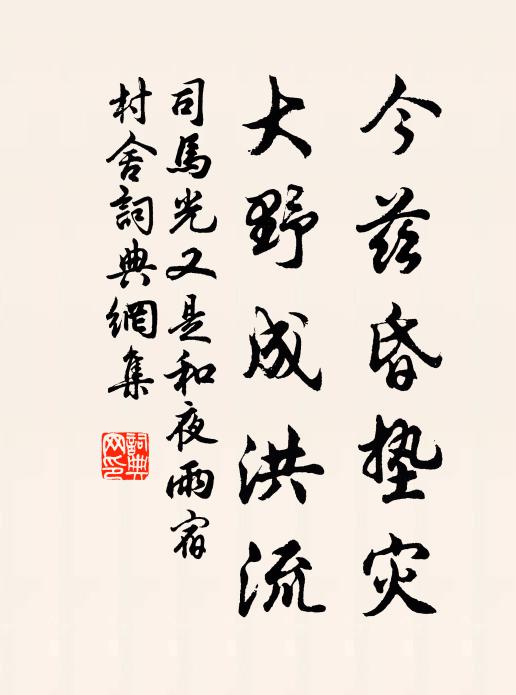 今茲昏墊灾
大野成洪流
司馬光又是和夜雨宿
村舍詞典網集
詞典
网印